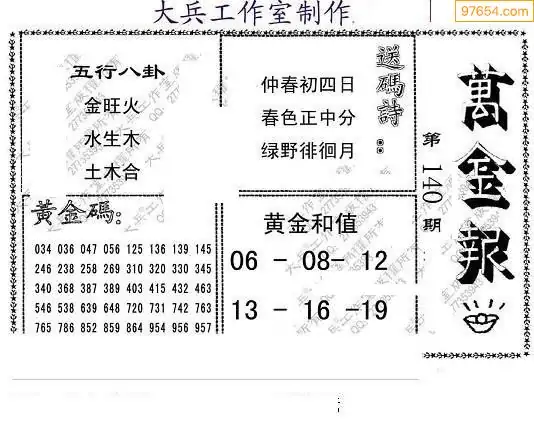 大兵工作室制作
97654.com
萬金報
第140期
送碼詩：
仲春初四日
春色正中分
绿野徘徊月
五行八卦
金旺火
水生木
土木合
黃金碼:
034 036 047 056 125 136 139 145
246 238 258 269 310 320 330 345
340 368 387 389 403 415 432 463
546 538 639 648 720 731 742 763
765 786 852 859 864 954 956 957
黄金和值
06 - 08- 12
13 - 16 -19